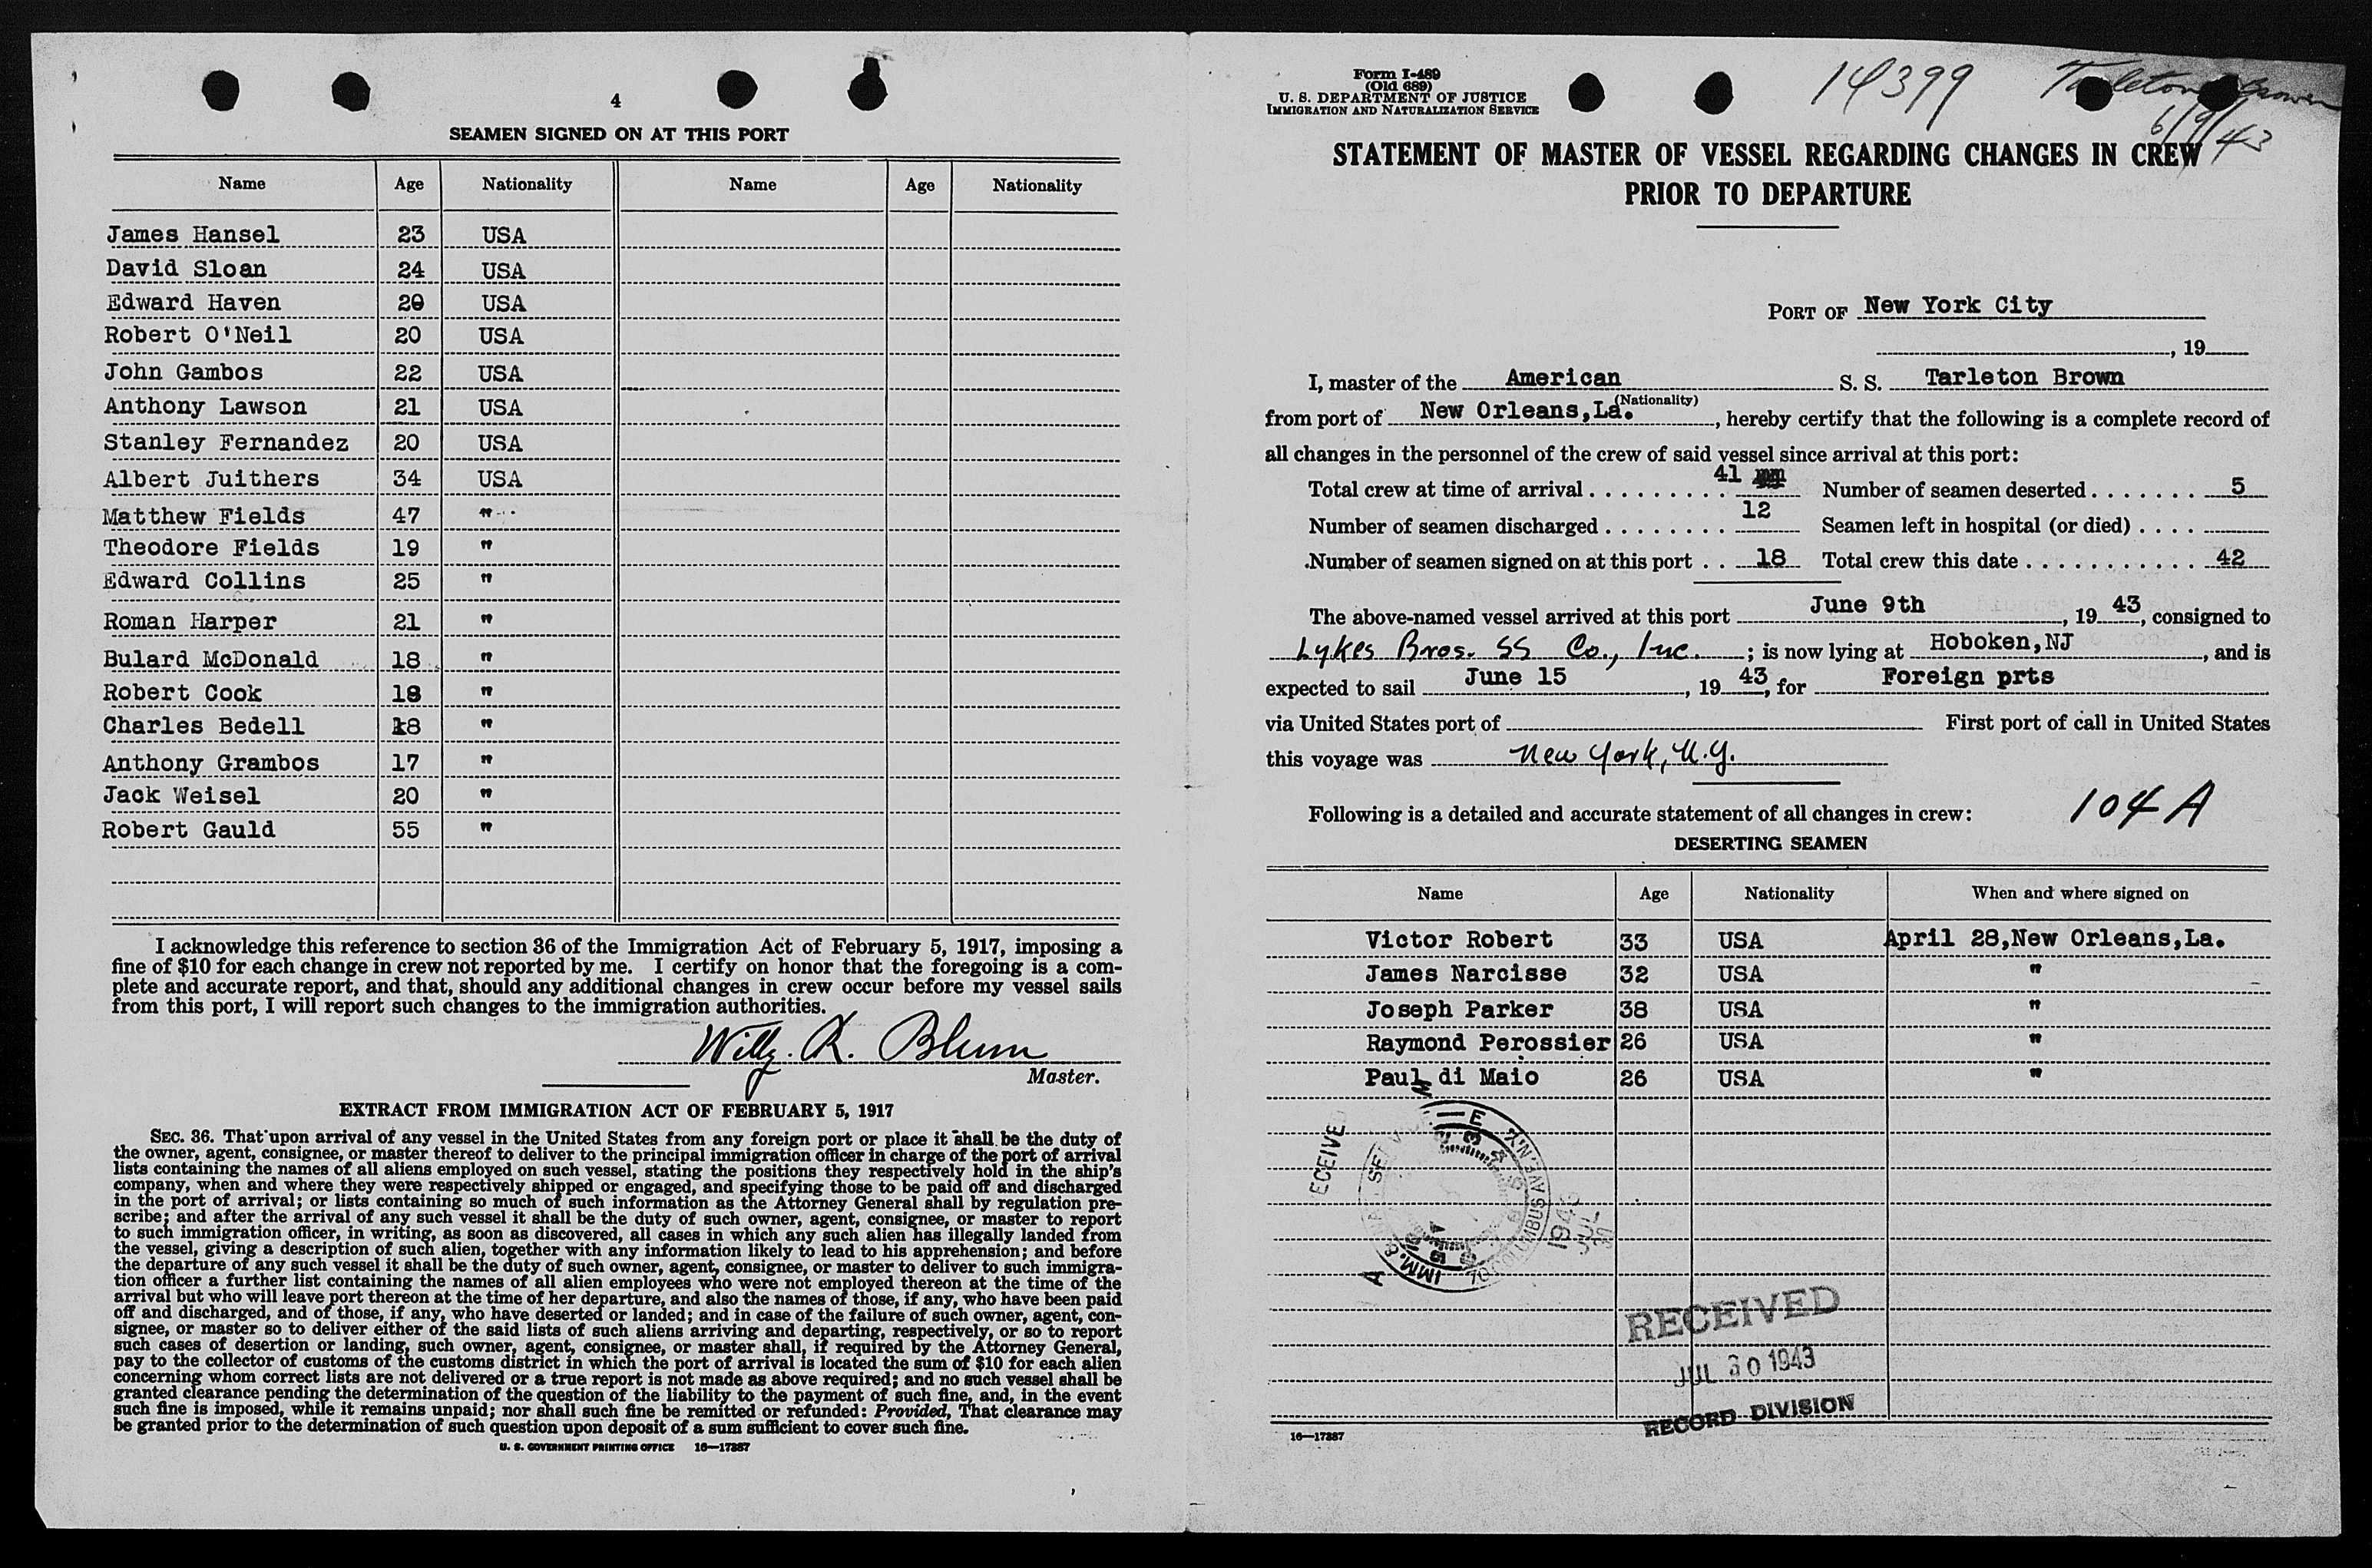 4
SEAMEN SIGNED ON AT THIS PORT
Name Age Nationality Name Age Nationality
James Hansel 23 USA
David Sloan 24 USA
Edward Haven 20 USA
Robert O'Neil 20 USA
John Gambos 22 USA
Anthony Lawson 21 USA
Stanley Fernandez 20 USA
Albert Juithers 34 USA
Matthew Fields 47 "
Theodore Fields 19 "
Edward Collins 25 "
Roman Harper 21 "
Bulard McDonald 18 "
Robert Cook 18 "
Charles Bedell 18 "
Anthony Grambos 17 "
Jack Weisel 20 "
Robert Gauld 55 "
I acknowledge this reference to section 36 of the Immigration Act of February 5, 1917, imposing a
fine of $10 for each change in crew not reported by me. I certify on honor that the foregoing is a com-
plete and accurate report, and that, should any additional changes in crew occur before my vessel sails
from this port, I will report such changes to the immigration authorities.
Willy. R. Blum
Master.
EXTRACT FROM IMMIGRATION ACT OF FEBRUARY 5, 1917
SEC. 36. That upon arrival of any vessel in the United States from any foreign port or place it shall be the duty of
the owner, agent, consignee, or master thereof to deliver to the principal immigration officer in charge of the port of arrival
lists containing the names of all aliens employed on such vessel, stating the positions they respectively hold in the ship's
company, when and where they were respectively shipped or engaged, and specifying those to be paid off and discharged
in the port of arrival; or lists containing so much of such information as the Attorney General shall by regulation pre-
scribe; and after the arrival of any such vessel it shall be the duty of such owner, agent, consignee, or master to report
to such immigration officer, in writing, as soon as discovered, all cases in which any such alien has illegally landed from
the vessel, giving a description of such alien, together with any information likely to lead to his apprehension; and before
the departure of any such vessel it shall be the duty of such owner, agent, consignee, or master to deliver to such immigra-
tion officer a further list containing the names of all alien employees who were not employed thereon at the time of the
arrival but who will leave port thereon at the time of her departure, and also the names of those, if any, who have been paid
off and discharged, and of those, if any, who have deserted or landed; and in case of the failure of such owner, agent, con-
signee, or master so to deliver either of the said lists of such aliens arriving and departing, respectively, or so to report
such cases of desertion or landing, such owner, agent, consignee, or master shall, if required by the Attorney General,
pay to the collector of customs of the customs district in which the port of arrival is located the sum of $10 for each alien
concerning whom correct lists are not delivered or a true report is not made as above required; and no such vessel shall be
granted clearance pending the determination of the question of the liability to the payment of such fine, and, in the event
such fine is imposed, while it remains unpaid; nor shall such fine be remitted or refunded: Provided, That clearance may
be granted prior to the determination of such question upon deposit of a sum sufficient to cover such fine.
U. S. GOVERNMENT PRINTING OFFICE 16—17887
Form I-489
(Old 689)
U. S. DEPARTMENT OF JUSTICE
IMMIGRATION AND NATURALIZATION SERVICE
14399 Tarleton Brown
6/9/43
STATEMENT OF MASTER OF VESSEL REGARDING CHANGES IN CREW
PRIOR TO DEPARTURE
PORT OF New York City
, 19
I, master of the American S. S. Tarleton Brown
(Nationality)
from port of New Orleans,La. , hereby certify that the following is a complete record of
all changes in the personnel of the crew of said vessel since arrival at this port:
Total crew at time of arrival . . . . . . . . . 41 Number of seamen deserted . . . . . . . 5
Number of seamen discharged . . . . . . . . 12 Seamen left in hospital (or died) . . . .
Number of seamen signed on at this port . . 18 Total crew this date . . . . . . . . . . . 42
The above-named vessel arrived at this port June 9th , 19 43, consigned to
Lykes Bros. SS Co., Inc. ; is now lying at Hoboken,NJ , and is
expected to sail June 15 , 19 43, for Foreign prts
via United States port of First port of call in United States
this voyage was New York, N.Y.
Following is a detailed and accurate statement of all changes in crew: 104 A
DESERTING SEAMEN
Name Age Nationality When and where signed on
Victor Robert 33 USA April 28,New Orleans,La.
James Narcisse 32 USA "
Joseph Parker 38 USA "
Raymond Perossier 26 USA "
Paul di Maio 26 USA "
RECEIVED
JUL 30 1943
RECORD DIVISION
16—17887